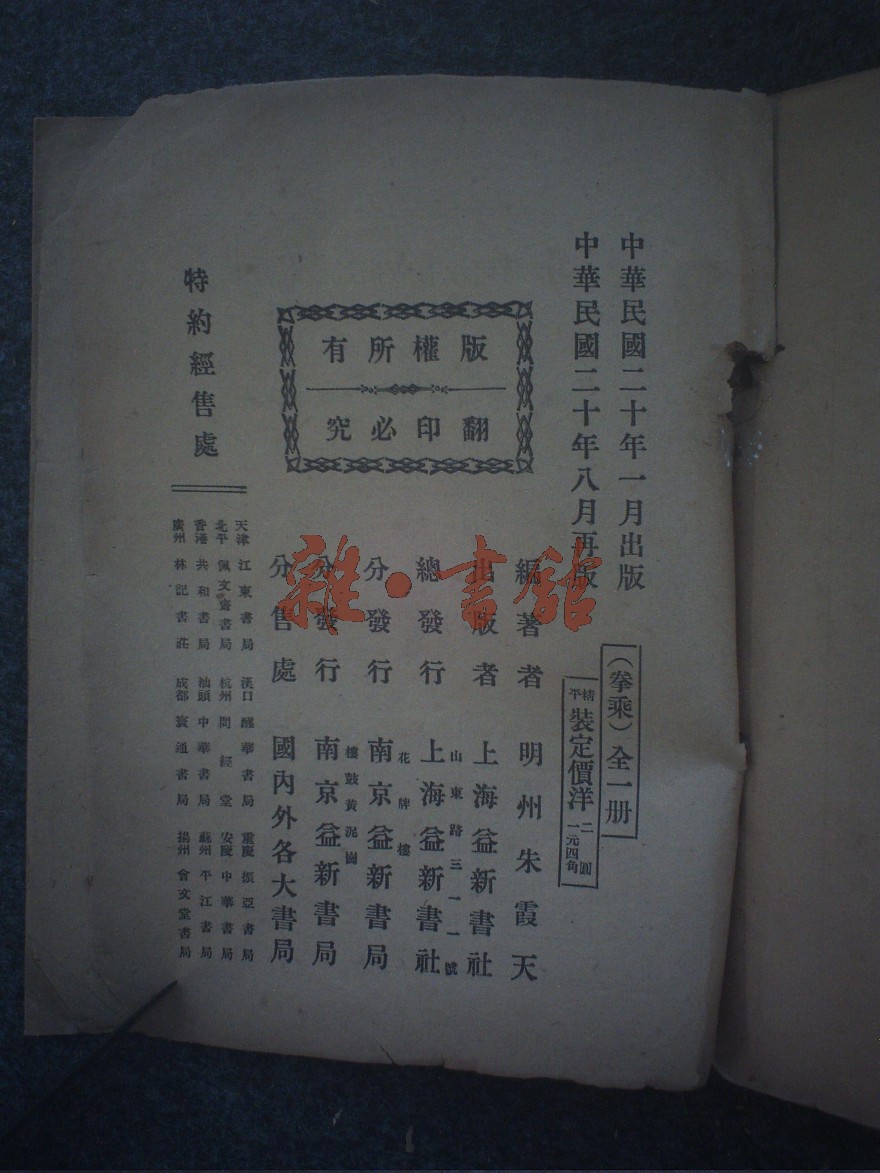 中華民國二十年一月出版
中華民國二十年八月再版
（拳乘）全一册
精平裝定價洋二圓一元四角
版權所有
翻印必究
編著者 明州朱霞天
出版者 上海益新書社
山東路三一一號
總發行 上海益新書社
花牌樓
分發行 南京益新書局
樓鼓黃泥崗
分發行 南京益新書局
分售處 國內外各大書局
特約經售處
天津 江東書局 漢口 醒華書局 重慶 振亞書局
北平 佩文齋書局 杭州 問經堂 安慶 中華書局
香港 共和書局 汕頭 中華書局 蘇州 平江書局
廣州 林記書莊 成都 寰通書局 揚州 會文堂書局
雜·書館